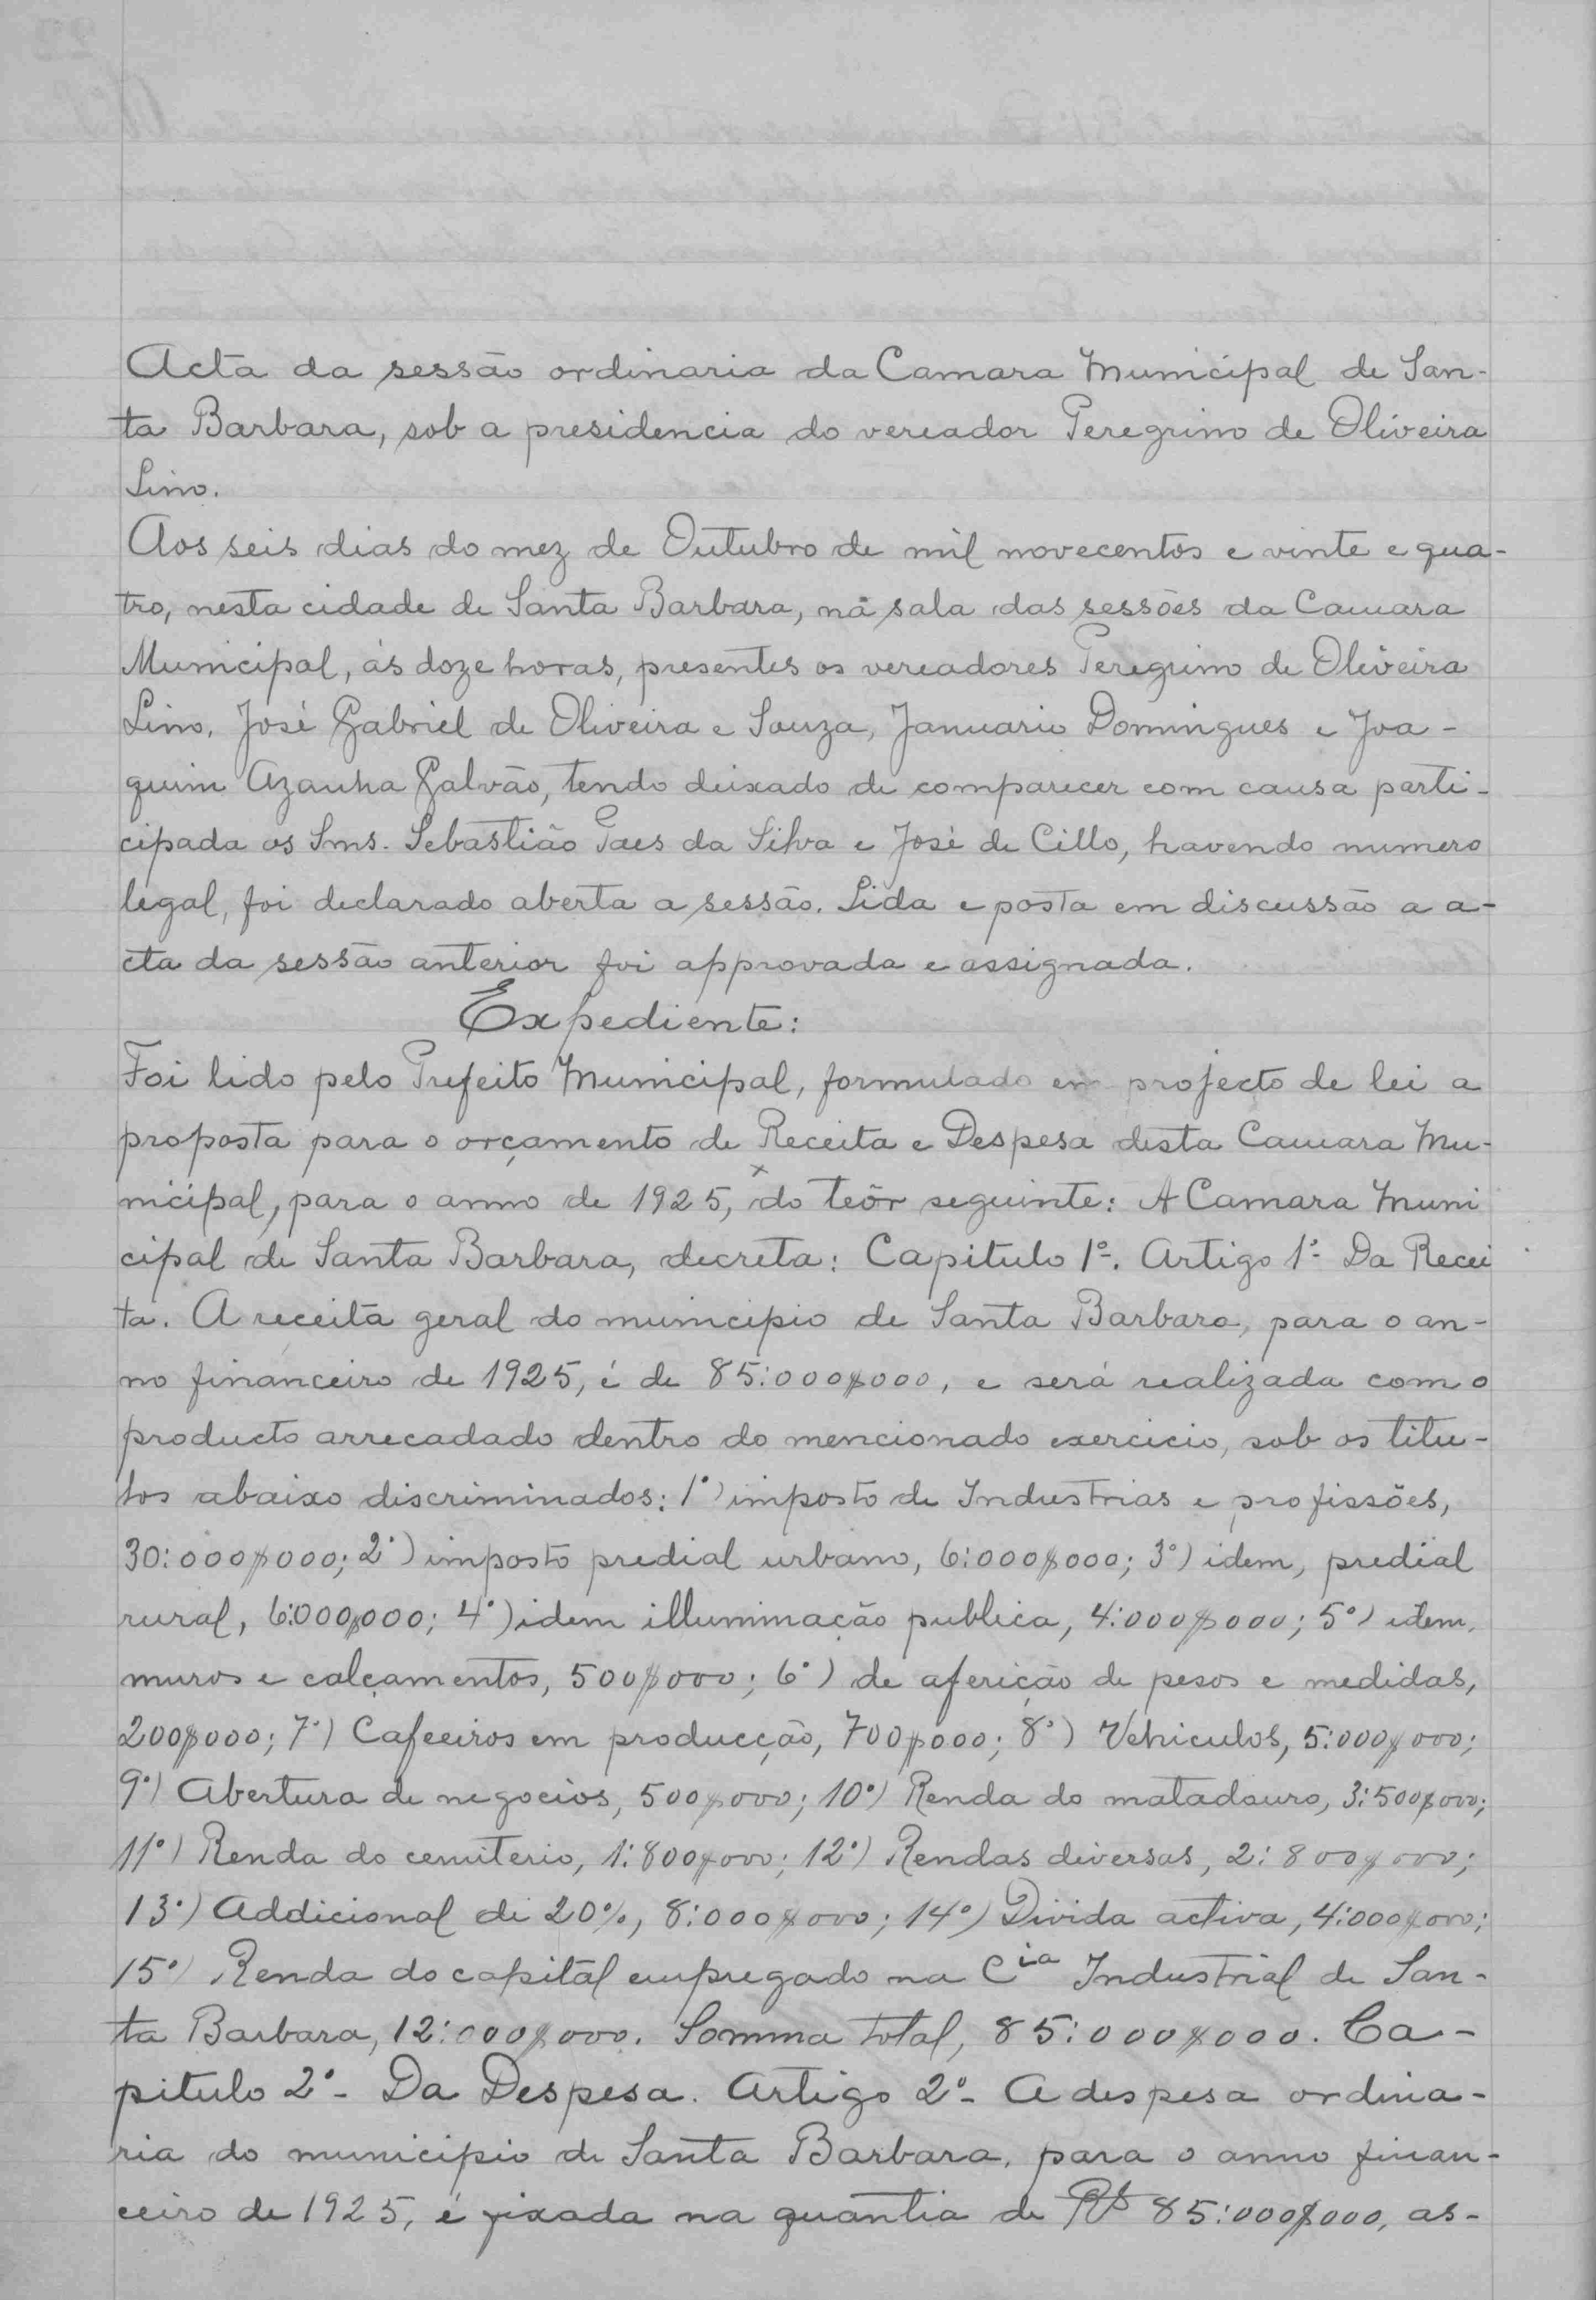 Acta da sessão ordinaria da Camara Municipal de San-
ta Barbara, sob a presidencia do vereador Peregrino de Oliveira
Lino.
Aos seis dias do mez de Outubro de mil novecentos e vinte e qua-
tro, nesta cidade de Santa Barbara, na sala das sessões da Camara
Municipal, ás doze horas, presentes os vereadores Peregrino de Oliveira
Lino, José Gabriel de Oliveira e Souza, Januario Domingues e Joa-
quim Azanha Galvão, tendo deixado de comparecer com causa parti-
cipada os Snrs. Sebastião Paes da Silva e José de Cillo, havendo numero
legal, foi declarado aberta a sessão. Lida e posta em discussão a a-
cta da sessão anterior foi approvada e assignada.
Expediente:
Foi lido pelo Prefeito Municipal, formulado em projecto de lei a
proposta para o orçamento de Receita e Despesa desta Camara Mu-
nicipal, para o anno de 1925, do teôr seguinte: A Camara Muni
cipal de Santa Barbara, decreta: Capitulo 1º. Artigo 1º Da Recei
ta. A receita geral do municipio de Santa Barbara, para o an-
no financeiro de 1925, é de 85:000$000, e será realizada com o
producto arrecadado dentro do mencionado exercicio, sob os titu-
los abaixo discriminados: 1º) imposto de Industrias e profissões,
30:000$000; 2º) imposto predial urbano, 6:000$000; 3º) idem, predial
rural, 6:000$000; 4º) idem illuminação publica, 4:000$000; 5º) idem,
muros e calçamentos, 500$000; 6º) de aferição de pesos e medidas,
200$000; 7º) Cafeeiros em producção, 700$000; 8º) Vehiculos, 5:000$000;
9º) Abertura de negocios, 500$000; 10º) Renda do matadouro, 3:500$000;
11º) Renda do cemiterio, 1:800$000; 12º) Rendas diversas, 2:800$000;
13º) Addicional de 20%, 8:000$000; 14º) Divida activa, 4:000$000;
15º) Renda do capital empregado na Cia Industrial de San-
ta Barbara, 12:000$000. Somma total, 85:000$000. Ca-
pitulo 2º- Da Despesa. Artigo 2º- A despesa ordina-
ria do municipio de Santa Barbara, para o anno finan-
ceiro de 1925, é fixada na quantia de Rs 85:000$000, as-